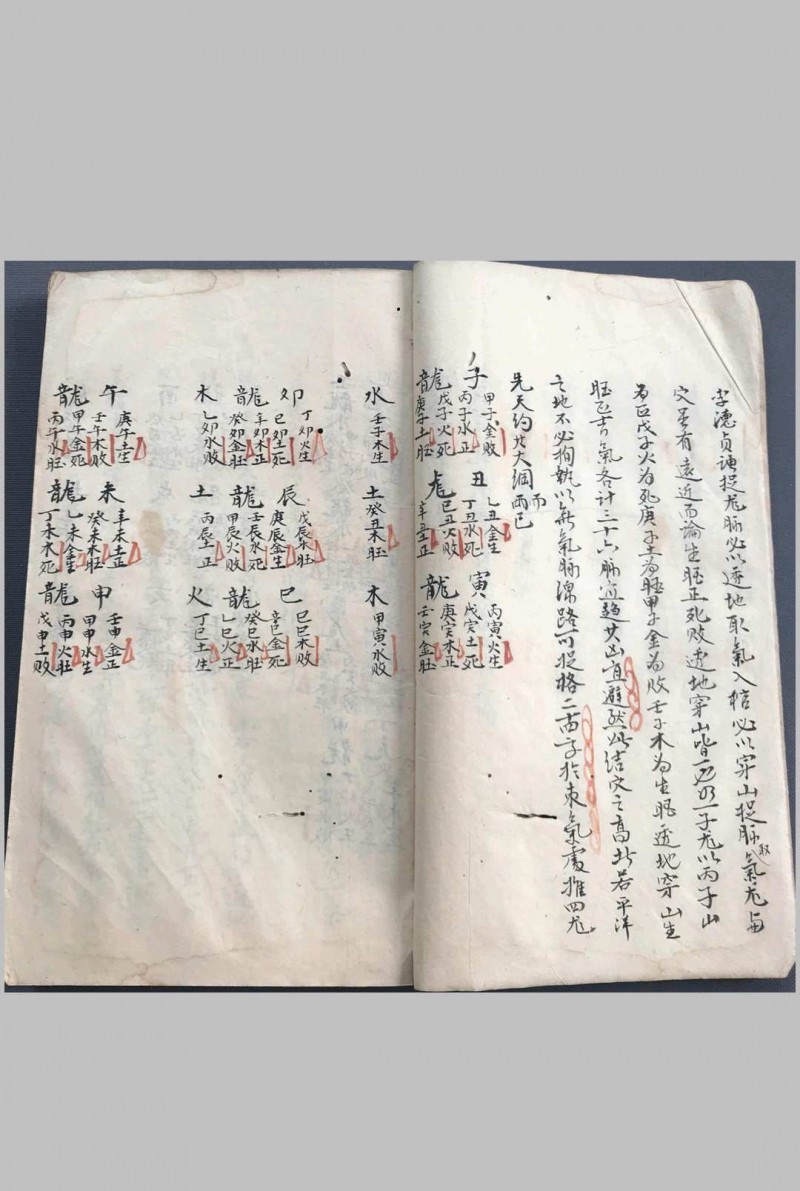 李德貞課捉龙脉必以透地取氣入棺必以穿山捉脉取氣龙与
穴虽有遠近而論生旺正死敗透地穿山皆一也乃一子龙以丙子山
為正戊子火為死庚子土為旺甲子金為敗壬子木為生旺透地穿山生
旺正吉氣各計三十六脉宜趋廿凶宜避然此结穴之高北若平洋
之地不必拘執以气氣脉線路可捉格二十四字於束氣處推四龙
先天約此大綱而兩已
子
甲子金敗
丙子水正
龍
戊子火死
庚子土旺
丑
乙丑金生
丁丑水死
龙
己丑火敗
辛丑土正
寅
丙寅火生
戊寅土死
龍
庚寅木正
壬寅金旺
水
壬子木生
土
癸丑木旺
木
甲寅水敗
卯
丁卯火生
己卯土死
龍
辛卯木正
癸卯金旺
辰
戊辰木旺
庚辰金生
龍
壬辰水死
甲辰火敗
巳
己巳木敗
辛巳金死
龍
癸巳水旺
乙巳火正
木
乙卯水敗
土
丙辰土正
火
丁巳土生
午
庚午土生
壬午木敗
龍
甲午金死
丙午水旺
未
辛未土正
癸未木旺
龍
乙未金生
丁未水死
申
壬申金正
甲申水生
龍
丙申火旺
戊申土敗